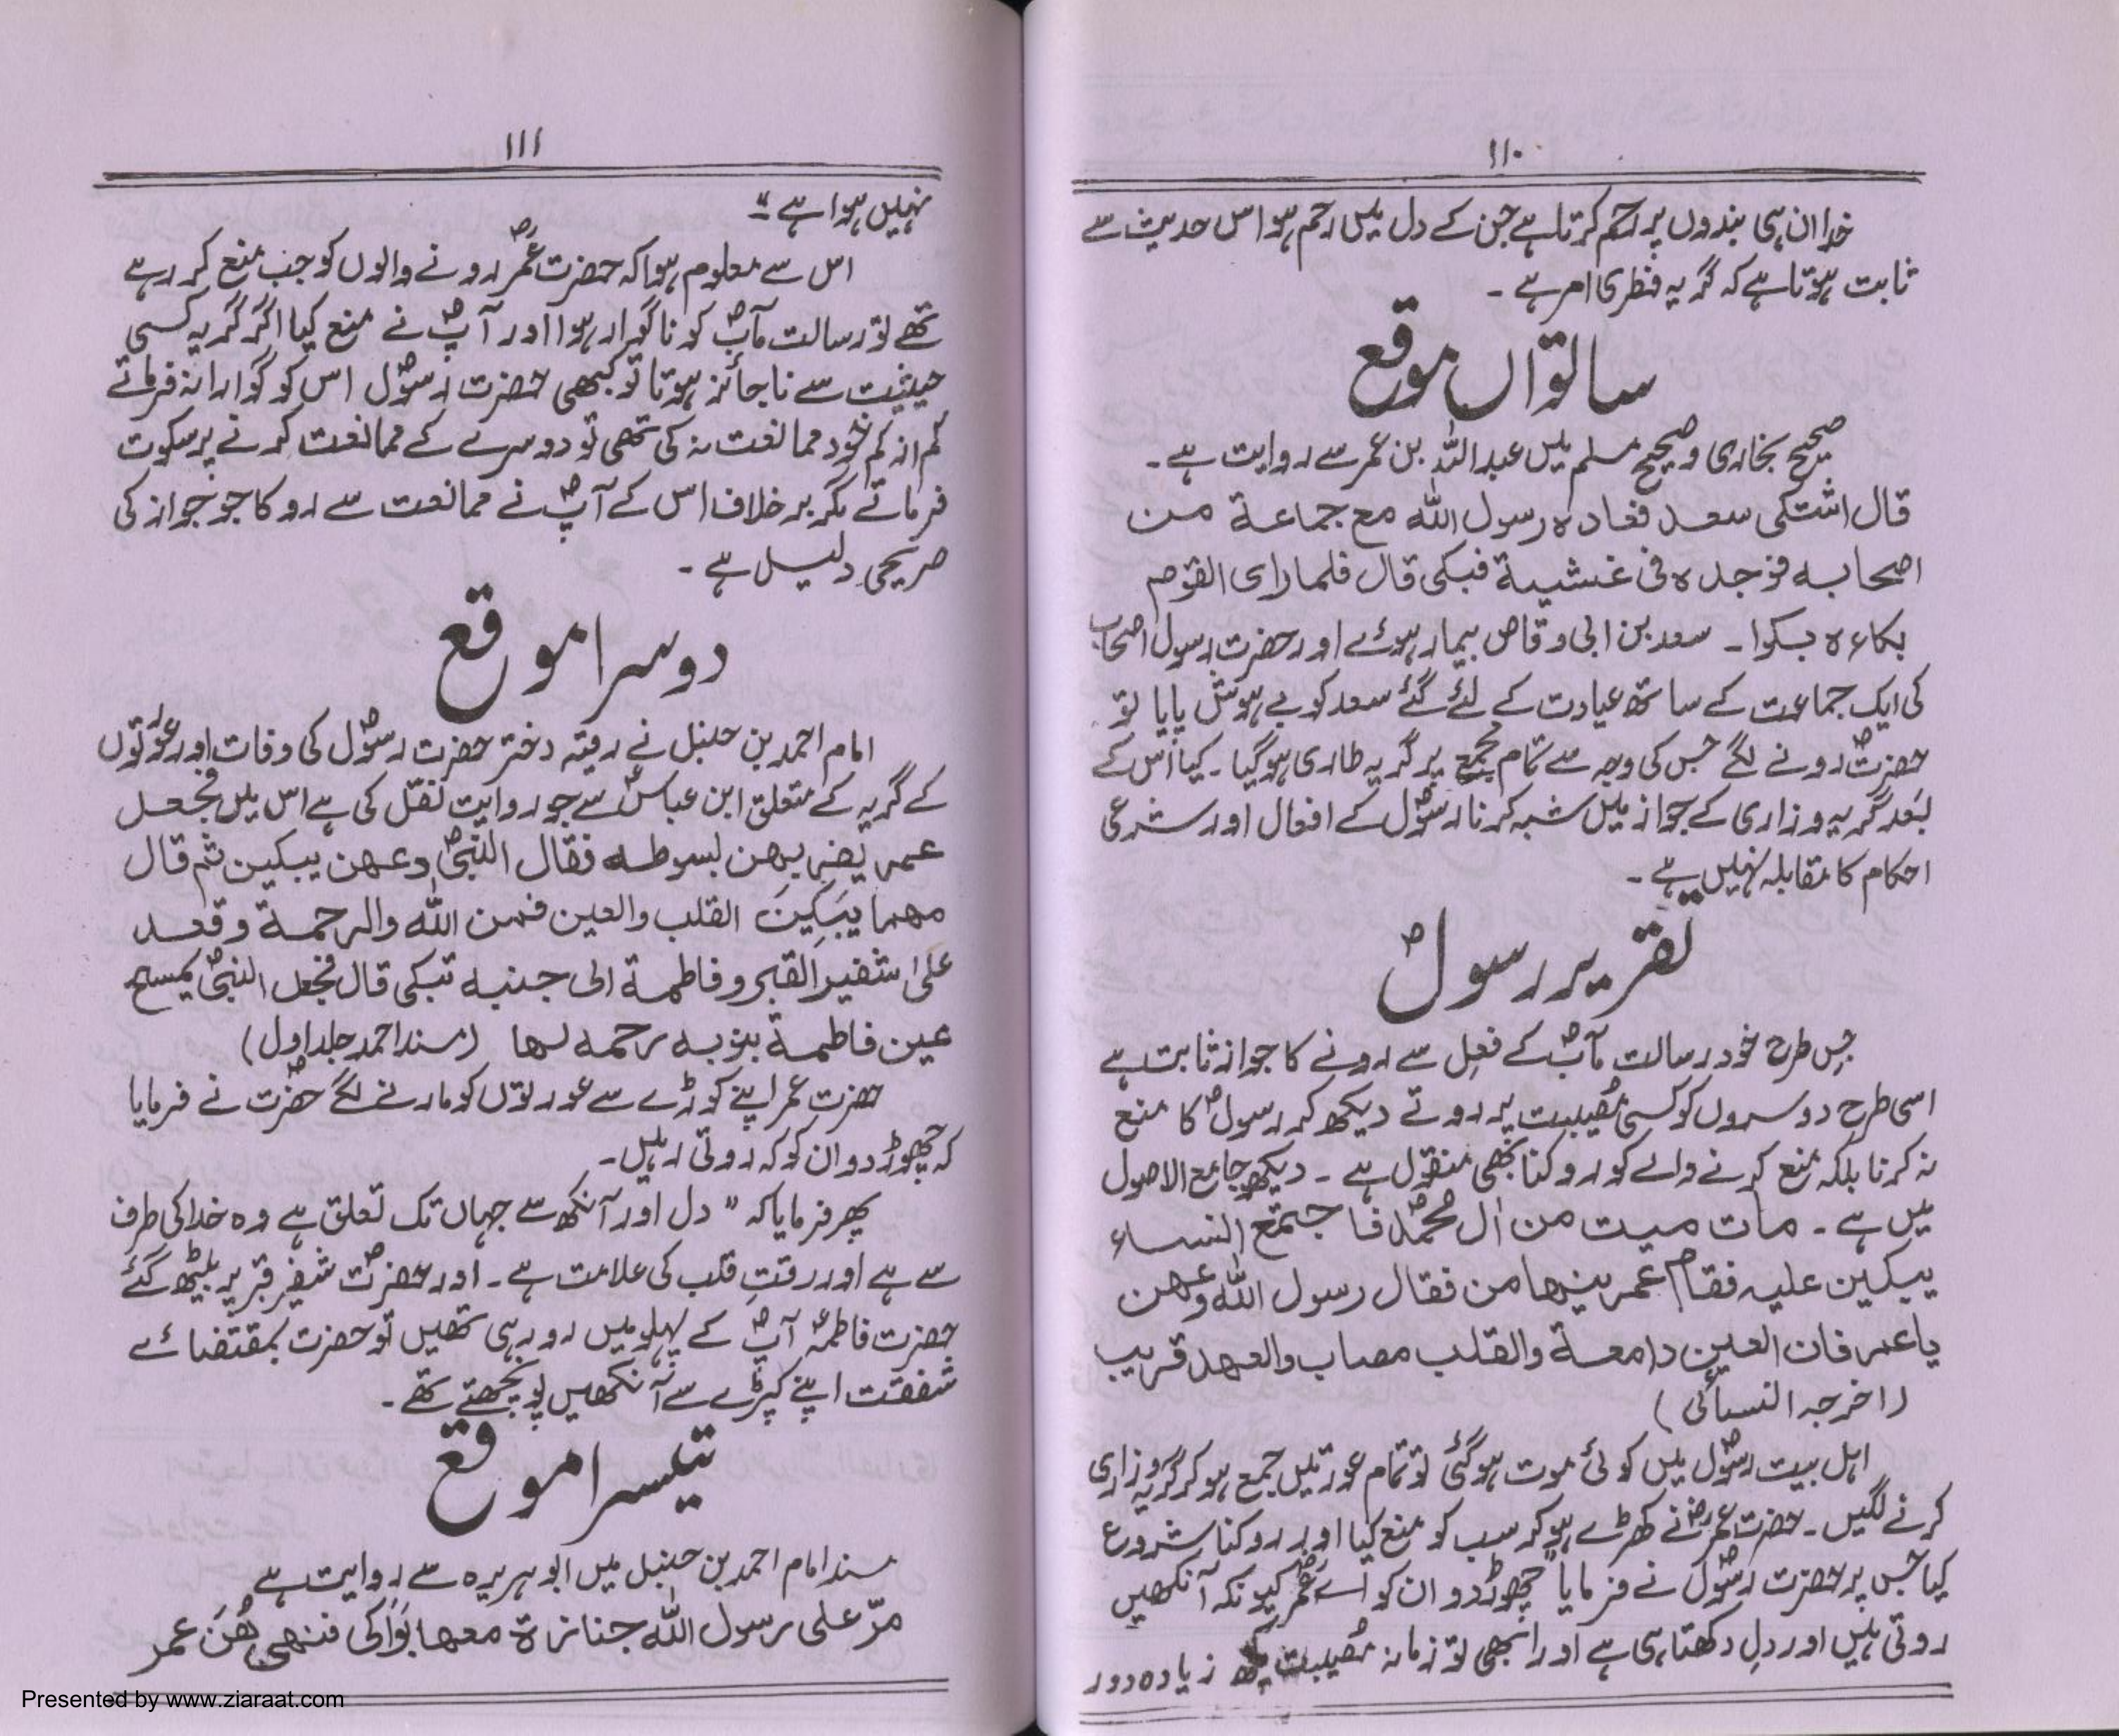 ۱۱۰
خدا ان ہی بندوں پر رحم کرتا ہے جن کے دل میں رحم ہو اس حدیث سے
ثابت ہوتا ہے کہ گریہ فطری امر ہے ۔
ساتواں موقع
صحیح بخاری و صحیح مسلم میں عبداللہ بن عمر سے روایت ہے ۔
قال اشتکی سعد فعادہ رسول اللہ مع جماعة من
اصحابہ فوجدہ فی غشیة فبکی قال فلما رای القوم
بکاءہ بکوا ۔ سعد بن ابی وقاص بیمار ہوئے اور حضرت رسول اصحاب
کی ایک جماعت کے ساتھ عیادت کے لئے گئے سعد کو بے ہوش پایا تو
حضرتؐ رونے لگے جس کی وجہ سے تمام مجمع پر گریہ طاری ہوگیا ۔ کیا اس کے
بعد گریہ وزاری کے جواز میں شبہ کرنا رسولؐ کے افعال اور شرعی
احکام کا مقابلہ نہیں ہے ۔
تقریر رسولؐ
جس طرح خود رسالت مآبؐ کے فعل سے رونے کا جواز ثابت ہے
اسی طرح دوسروں کو کسی مُصیبت پر روتے دیکھ کر رسولؐ کا منع
نہ کرنا بلکہ منع کرنے والے کو روکنا بھی منقول ہے ۔ دیکھو جامع الاصول
میں ہے ۔ مات میت من آل محمدؐ فاجتمع النساء
یبکین علیہ فقام عمر ینہا من فقال رسول اللہ وعہن
یا عمر فان العین دامعة والقلب مصاب والعہد قریب
(اخرجہ النسائی)
اہل بیت رسولؐ میں کوئی موت ہوگئی تو تمام عورتیں جمع ہو کر گریہ وزاری
کرنے لگیں ۔ حضرت عمرؓ نے کھڑے ہو کر سب کو منع کیا اور روکنا شروع
کیا جس پر حضرت رسولؐ نے فرمایا "چھوڑ دو ان کو اے عمر کیونکہ آنکھیں
روتی ہیں اور دل دکھتا ہی ہے اور ابھی تو زمانہ مُصیبت کچھ زیادہ دور
۱۱۱
نہیں ہوا ہے "
اس سے معلوم ہوا کہ حضرت عمرؓ رونے والوں کو جب منع کر رہے
تھے تو رسالت مآبؐ کو ناگوار ہوا اور آپؐ نے منع کیا اگر گریہ کسی
حیثیت سے ناجائز ہوتا تو کبھی حضرت رسولؐ اس کو گوارا نہ فرماتے
کم از کم خود ممانعت نہ کی تھی تو دوسرے کے ممانعت کرنے پر سکوت
فرماتے مگر برخلاف اس کے آپؐ نے ممانعت سے روکا جو جواز کی
صریحی دلیل ہے ۔
دوسرا موقع
امام احمد بن حنبل نے رقیہ دختر حضرت رسولؐ کی وفات اور عورتوں
کے گریہ کے متعلق ابن عباسؓ سے جو روایت نقل کی ہے اس میں فجعل
عمر یضربہن بسوطہ فقال النبیؐ دعہن یبکین ثم قال
مہما یبکین القلب والعین فمن اللہ والرحمة وقعد
علیٰ شفیر القبر و فاطمة الی جنبہ تبکی قال فجعل النبیؐ یمسح
عین فاطمة بثوبہ رحمہ لہا (مسند احمد جلد اول)
حضرت عمر اپنے کوڑے سے عورتوں کو مارنے لگے حضرتؐ نے فرمایا
کہ چھوڑ دو ان کو کہ روتی رہیں ۔
پھر فرمایا کہ " دل اور آنکھ سے جہاں تک تعلق ہے وہ خدا کی طرف
سے ہے اور رقتِ قلب کی علامت ہے ۔ اور حضرتؐ شفیر قبر پر بیٹھ گئے
حضرت فاطمہؑ آپؐ کے پہلو میں رو رہی تھیں تو حضرت بمقتضائے
شفقت اپنے کپڑے سے آنکھیں پونچھتے تھے ۔
تیسرا موقع
مسند امام احمد بن حنبل میں ابوہریرہ سے روایت ہے
مرّ علی رسول اللہ جنازة معہا بَوَاکی فنہی ھُنَّ عمر
Presented by www.ziaraat.com